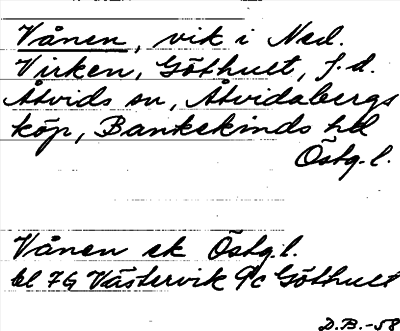 Vånen, vik i Ned.
Virken, Göthult, f.d.
Åtvids sn, Åtvidabergs
köp, Bankekinds hd
Östg.l.
Vånen ek Östg.l.
bl 7G Västervik 9c Göthult
D.B.-58